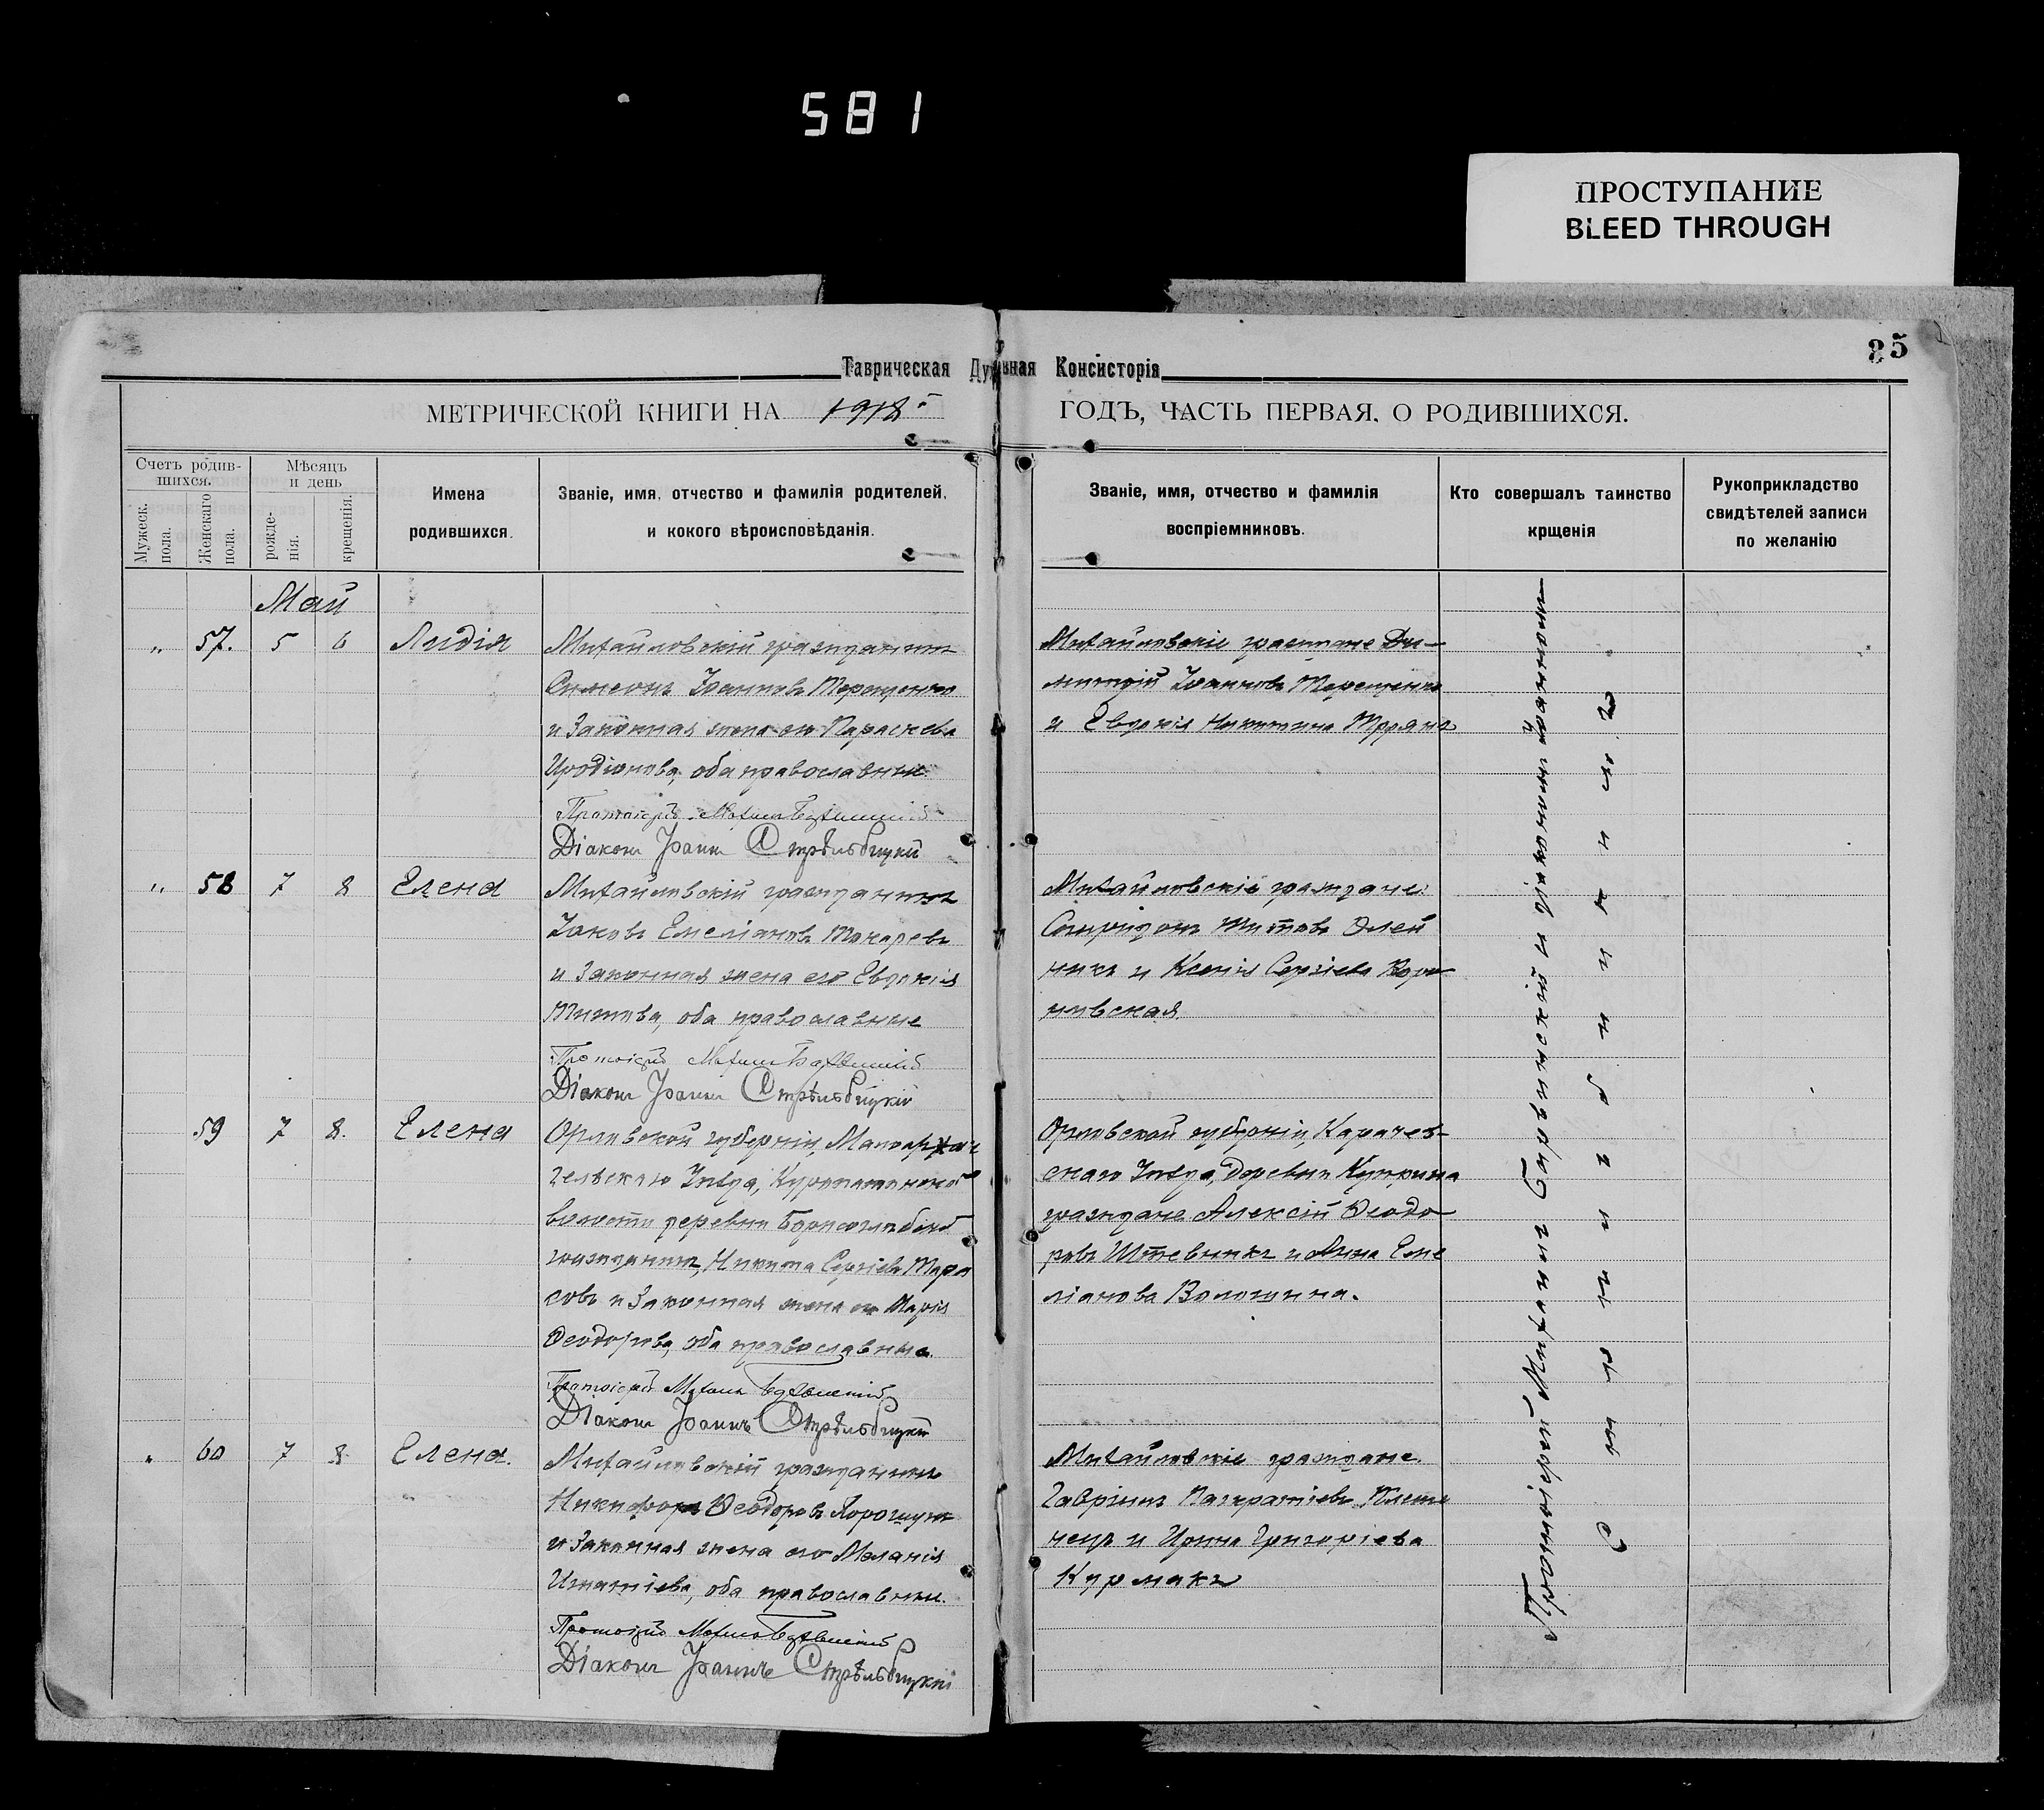 581
ПРОСТУПАНИЕ
BLEED THROUGH
85
Таврическая Духовная Консисторія
МЕТРИЧЕСКОЙ КНИГИ НА 1918 ГОДЪ, ЧАСТЬ ПЕРВАЯ, О РОДИВШИХСЯ.
Счетъ родив-
шихся.
Мужеск.
пола.
Женскаго
пола.
Мѣсяцъ
и день
рожде-
нія.
крещенія.
Имена
родившихся.
Званіе, имя, отчество и фамилія родителей,
и кокого вѣроисповѣданія.
Званіе, имя, отчество и фамилія
воспріемниковъ.
Кто совершалъ таинство
крщенія
Рукоприкладство
свидѣтелей записи
по желанію
Май
" 57. 5 6 Лидія
Михайловскій гражданинъ
Симеонъ Іоанновъ Терещенко
и законная жена его Параскева
Иродіонова, оба православные.
Протоіерей
Діаконъ Іоаннъ Стрѣльбицкій
Михайловскіе граждане Ди-
митрій Іоанновъ Терещенко
и Евдокія Никитина
" 58 7 8 Елена
Михайловскій гражданинъ
Іаковъ Емеліановъ Токаревъ
и законная жена его Евдокія
Титова, оба православные
Протоіерей
Діаконъ Іоаннъ Стрѣльбицкій
Михайловскіе граждане
Спиридонъ Титовъ Олей
никъ и Ксенія Сергіева
новская.
59 7 8. Елена
Орловской губерніи, Малоархан
гельскаго уѣзда,
волости деревни
гражданинъ, Никита Сергіевъ Тара
совъ и законная жена его Марія
Ѳеодорова, оба православные.
Протоіерей
Діаконъ Іоаннъ Стрѣльбицкій
Орловской губерніи, Карачев-
скаго уѣзда, деревни Куприна
граждане Алексій Ѳеодо-
ровъ и Анна Еме
ліанова Волошина.
" 60 7 8 Елена.
Михайловскій гражданинъ
Никифоръ Ѳеодоровъ
и законная жена его Меланія
Игнатіева, оба православные.
Протоіерей
Діаконъ Іоаннъ Стрѣльбицкій
Михайловскіе граждане
Гавріилъ Панкратіевъ
нецъ и Ирина Григоріева
Курмакъ